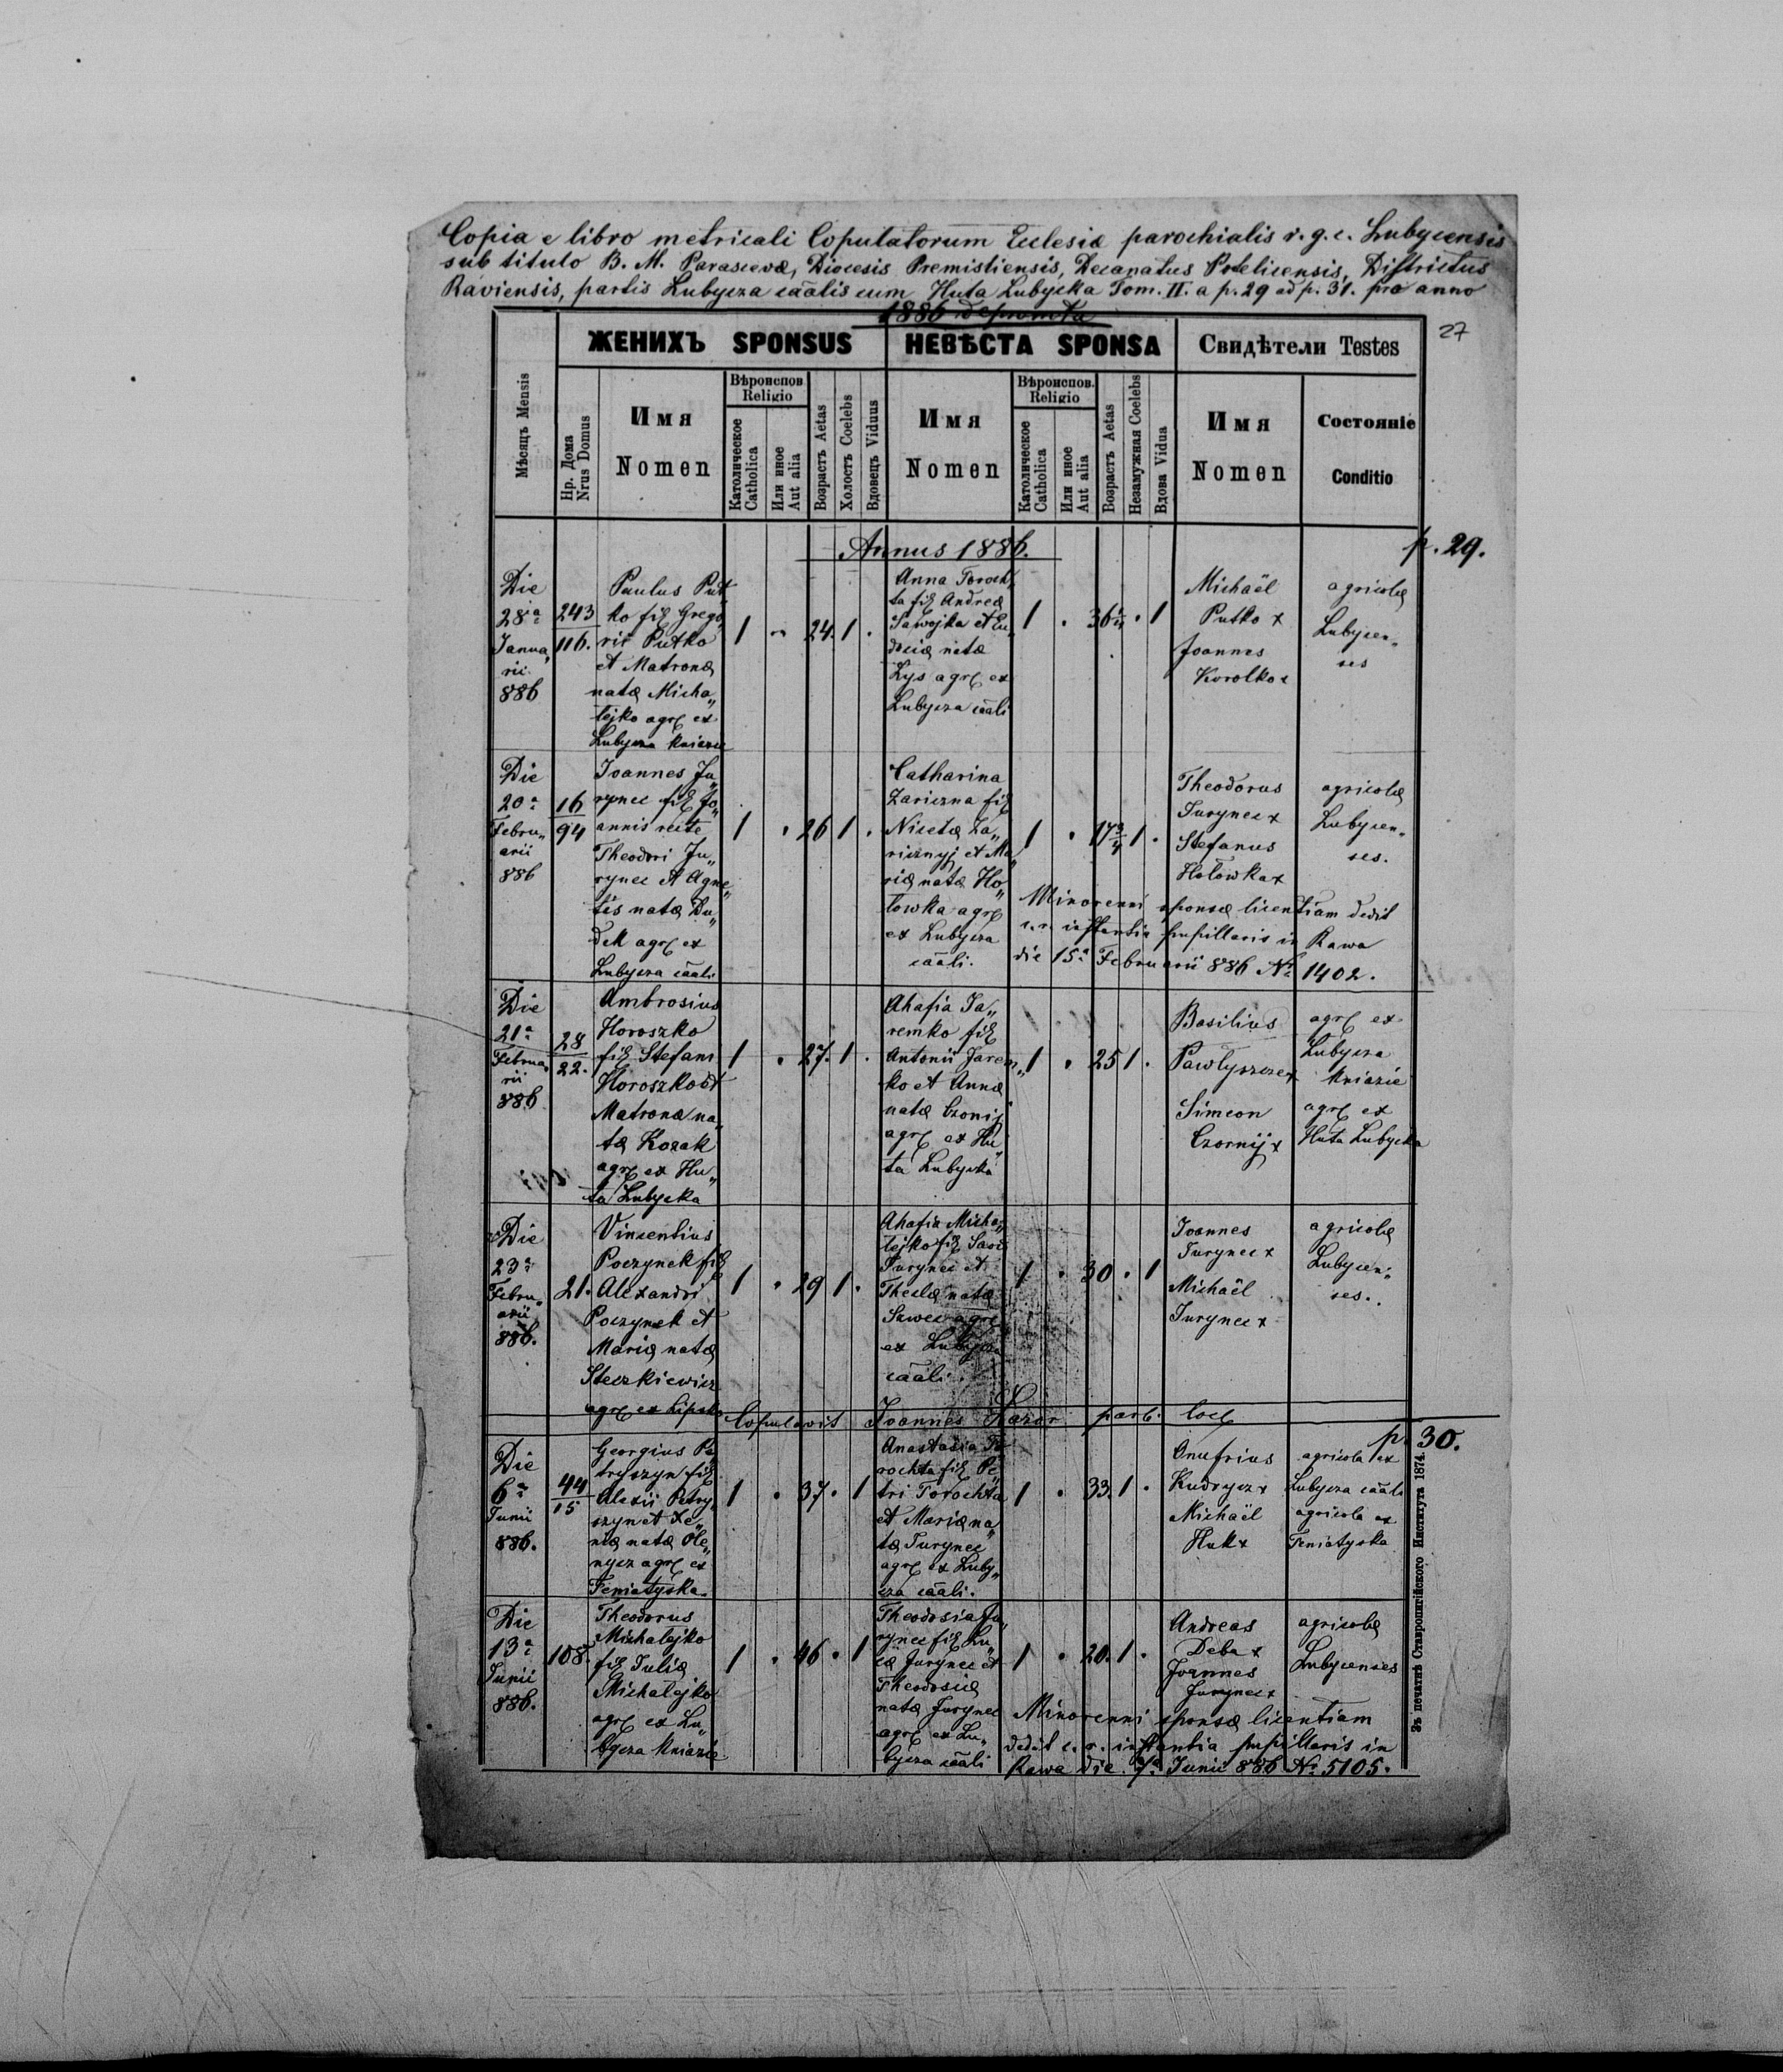 Copia e libro metricali Copulatorum Ecclesiæ parochialis r. g. c. Lubycensis
sub titulo B. M. Parascevæ, Diœcesis Premisliensis, Decanatus Potelicensis, Districtus
Raviensis, partis Lubycza cääalis cum Huta Lubycka Tom. II. a p. 29 ad p. 31. pro anno
1886 depromta
27
ЖЕНИХЪ SPONSUS
НЕВѢСТА SPONSA
Свидѣтели Testes
Мѣсяцъ Mensis
Нр. Дома
Nrus Domus
Имя
Nomen
Вѣроиспов.
Religio
Католическое
Catholica
Или иное
Aut alia
Возрастъ Aetas
Холостъ Coelebs
Вдовецъ Viduus
Имя
Nomen
Вѣроиспов.
Religio
Католическое
Catholica
Или иное
Aut alia
Возрастъ Aetas
Незамужная Coelebs
Вдова Vidua
Имя
Nomen
Состояніе
Conditio
Annus 1886.
p. 29.
Die
28ᵃ
Janua„
rii
886
243
116.
Paulus Put„
ko fil Grego„
rii Putko
et Matronæ
natæ Micha„
lejko agr ex
Lubycza Kniazie
1 24. 1
Anna Toroch„
ta fil Andreæ
Sawojka et Eu„
dociæ natæ
Lys agr ex
Lubycza cääli
1 36 1
Michaël
Putko x
Joannes
Korolko x
agricolæ
Lubycen„
ses
Die
20ᵃ
Febru„
arii
886
16
94
Joannes Ju„
rynec fil Jo„
annis recte
Theodori Ju„
rynec et Agne„
tis natæ Du„
dek agr ex
Lubycza cääli
1 26 1
Catharina
Zariczna fil
Nicetæ Za„
ricznyj et Ma„
riæ natæ Ho„
towka agr
ex Lubycza
cääli.
1 17¾ 1
Theodorus
Jurynec x
Stefanus
Hotowka x
agricolæ
Lubycen„
ses.
Minorenni sponsæ licentiam dedit
c. r. instantia pupillaris in Rawa
die 15ᵃ Februarii 886 Nᵒ 1402.
Die
21ᵃ
Februa„
rii
886
28
22.
Ambrosius
Horoszko
fil Stefani
Horoszko et
Matronæ na„
tæ Kozak
agr ex Hu„
ta Lubycka
1 27. 1
Ahafia Ja„
remko fil
Antonii Jarem„
ko et Annæ
natæ Czornij
agr ex Hu„
ta Lubycka
1 25 1
Basilius
Pawlyszcze x
Simeon
Czornij x
agr ex
Lubycza
Kniazie
agr ex
Huta Lubycka
Die
23ᵃ
Febru„
arii
886.
21.
Vincentius
Poczynek fil
Alexandri
Poczynek et
Mariæ natæ
Steczkiewicz
agr ex Lipsko
1 29 1
Ahafia Micha„
lejko fil
Jurynec et
Theclæ natæ
Sawec agr
ex Lubycza
cääli.
1 30 1
Joannes
Jurynec x
Michaël
Jurynec x
agricolæ
Lubycen„
ses.
Copulavit Joannes par. loci
p. 30.
Die
6ᵃ
Junii
886.
44
15
Georgius Pe„
tryszyn fil
Alexii Petry„
szyn et Xe„
niæ natæ Ole„
nycz agr ex
Teniatyska.
1 37. 1
Anastasia To„
rochta fil Pe„
tri Torochta
et Mariæ na„
tæ Jurynec
agr ex Luby„
cza cääli.
1 33. 1
Onufrius
Kudrycz x
Michaël
Huk x
agricola ex
Lubycza cääli
agricola ex
Teniatyska
Die
13ᵃ
Junii
886.
108.
Theodorus
Michalejko
fil Juliæ
Michalejko
agr ex Lu„
bycza Kniazie
1 46 1
Theodosia Ju„
rynec fil Lu„
cæ Jurynec et
Theodosiæ
natæ Jurynec
agr ex Lu„
bycza cääli
1 20. 1
Andreas
Deba x
Joannes
Jurynec x
agricolæ
Lubycenses
Minorenni sponsæ licentiam
dedit c. r. instantia pupillaris in
Rawa die 7ᵃ Junii 886 Nᵒ 5105.
Зъ печатнѣ Ставропигійского Института 1874.